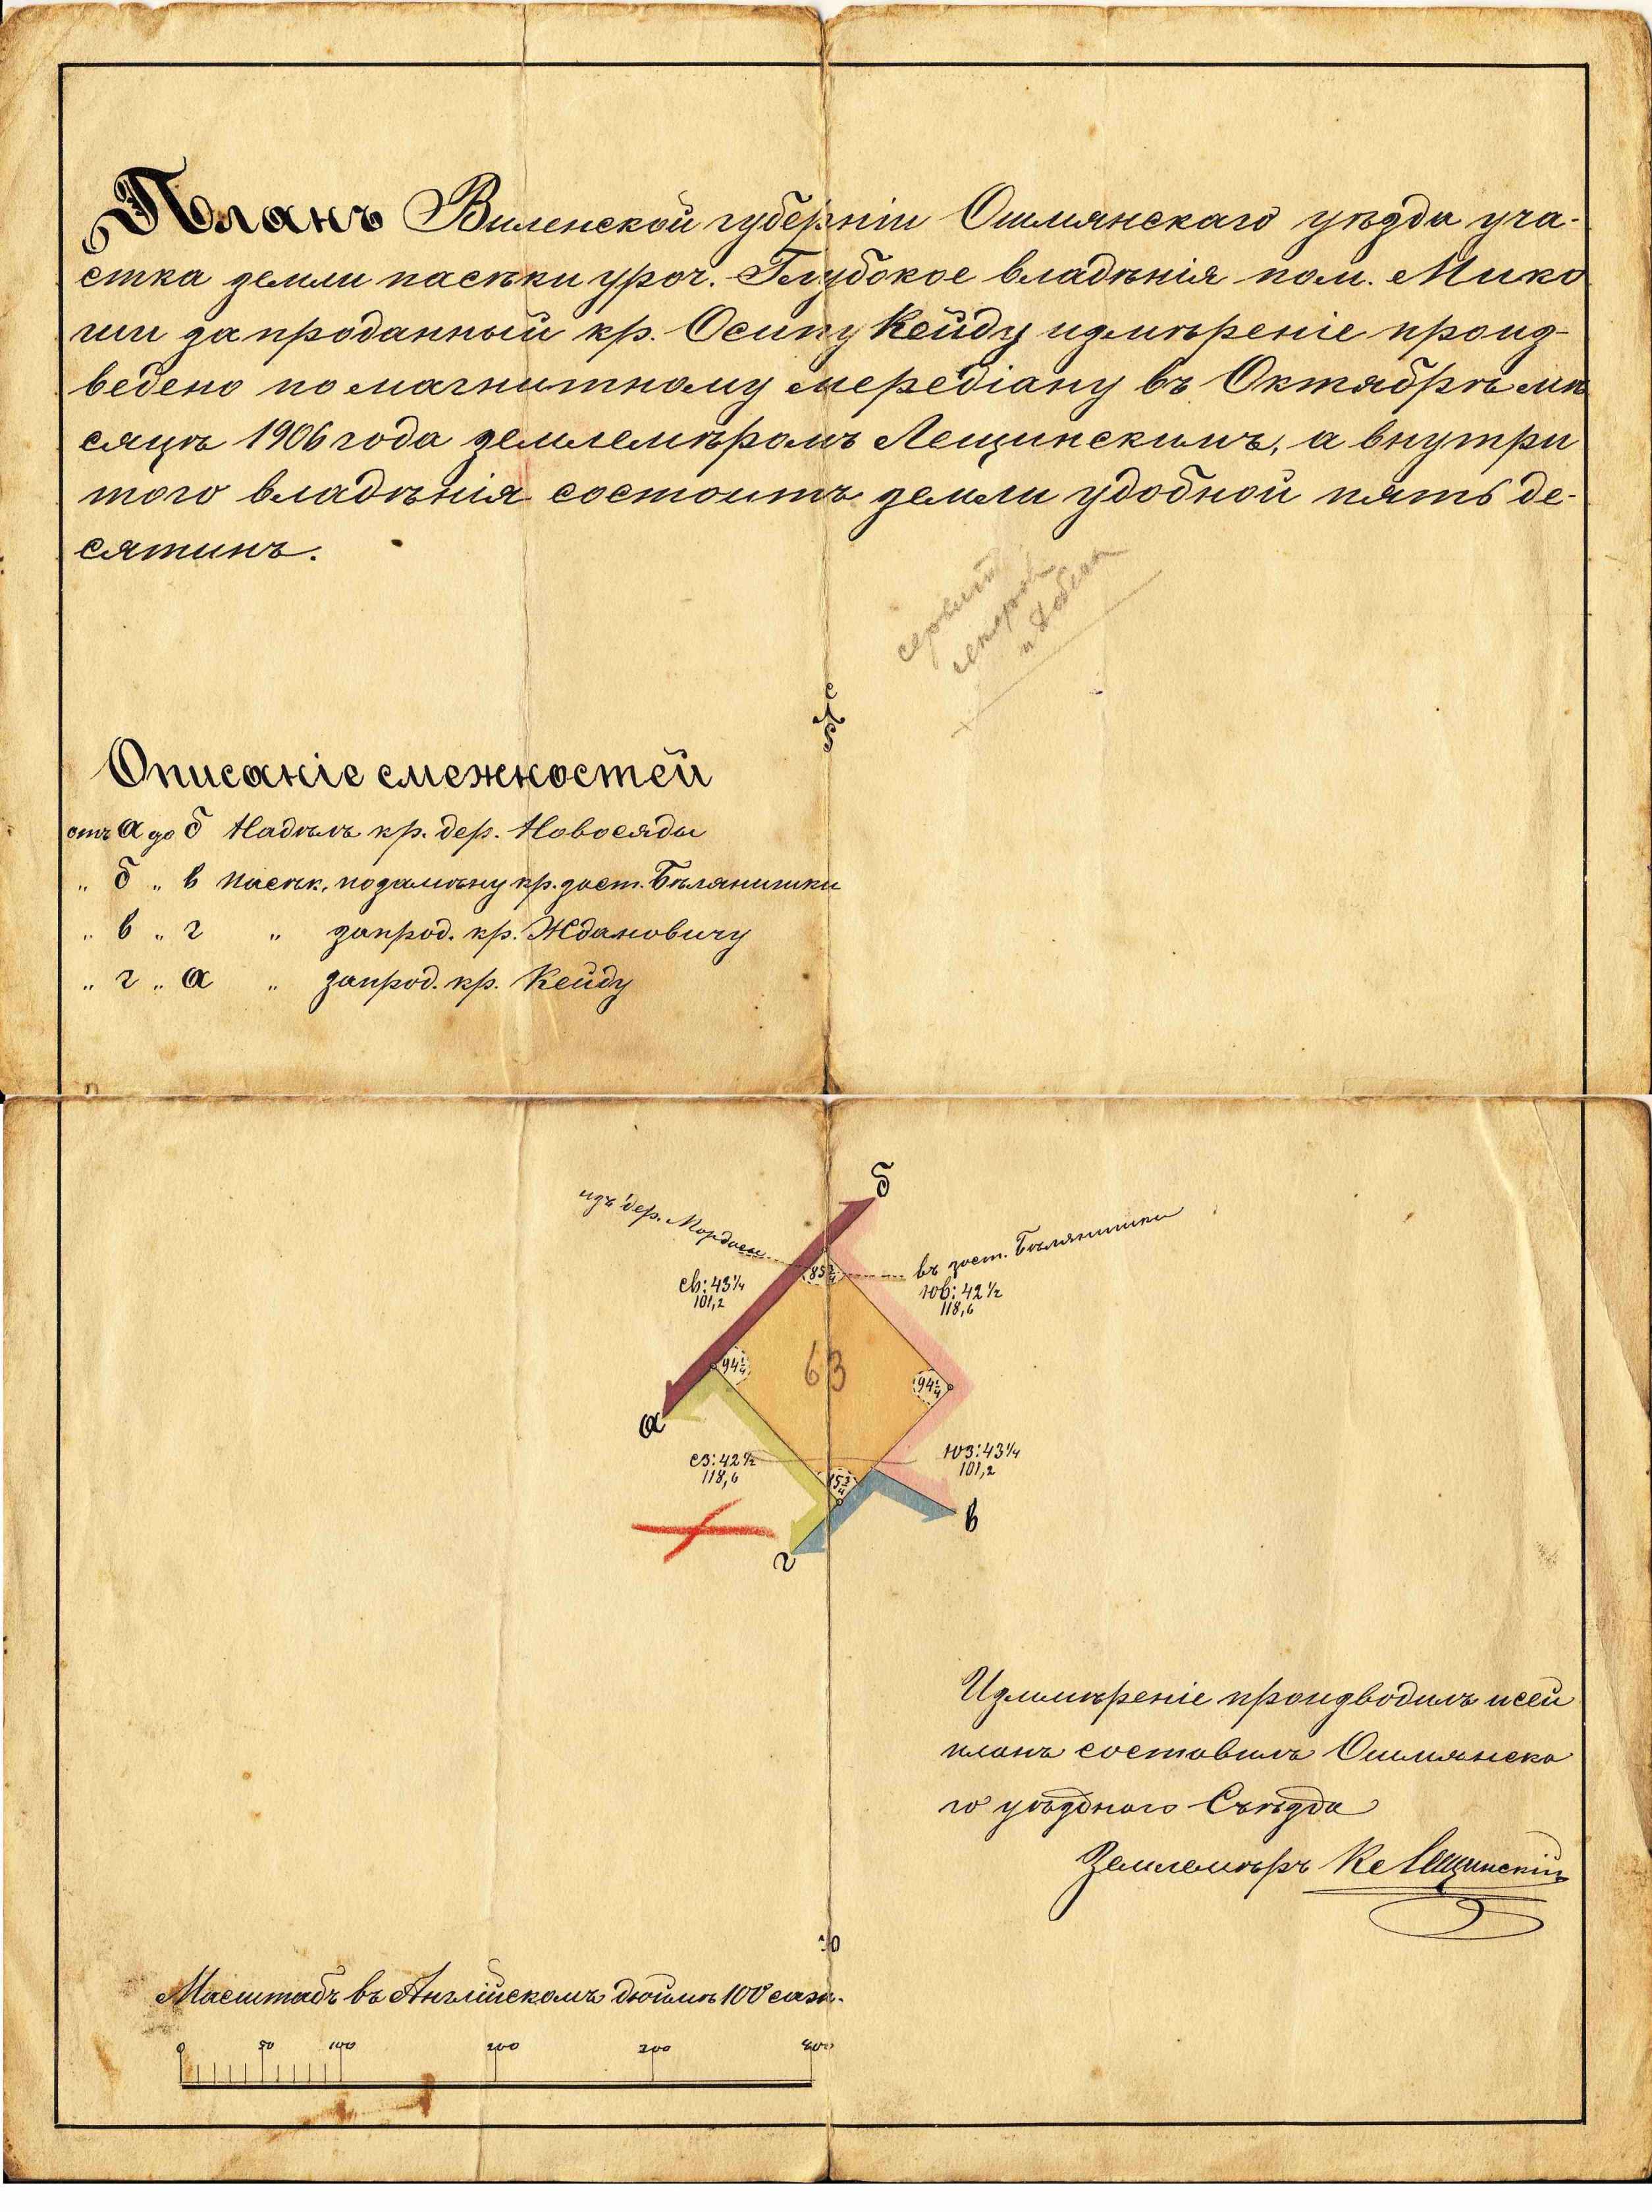 Планъ Виленской губерніи Ошмянскаго уѣзда уча-
стка земли пасѣки уроч. Глубокое владѣнія пом. Мико
ши запроданный кр. Осипу Кейду измѣреніе произ-
ведено по магнитному мередіану въ Октябрѣ мѣ
сяцѣ 1906 года землемѣромъ Лещинскимъ, а внутри
того владѣнія состоитъ земли удобной пять де-
сятинъ.
с
Описаніе смежностей
отъ а до б Надѣлъ кр. дер. Новосяды
" б " в пасѣк. по замѣну кр. заст. Бѣлянишки
" в " г " запрод. кр. Ждановичу
" г " а " запрод. кр. Кейду
б
изъ дер.
въ заст. Бѣлянишки
85¾
св: 43¼
101,2
юв: 42½
118,6
63
94¼
94¼
а
сз: 42½
118,6
юз: 43¼
101,2
в
г
Измѣреніе производилъ и сей
планъ составилъ Ошмянска
го уѣзднаго Съѣзда
Землемѣръ Ке Лещинскій
ю
Масштабъ въ Англійскомъ дюймѣ 100 саж.
0 50 100 200 300 400